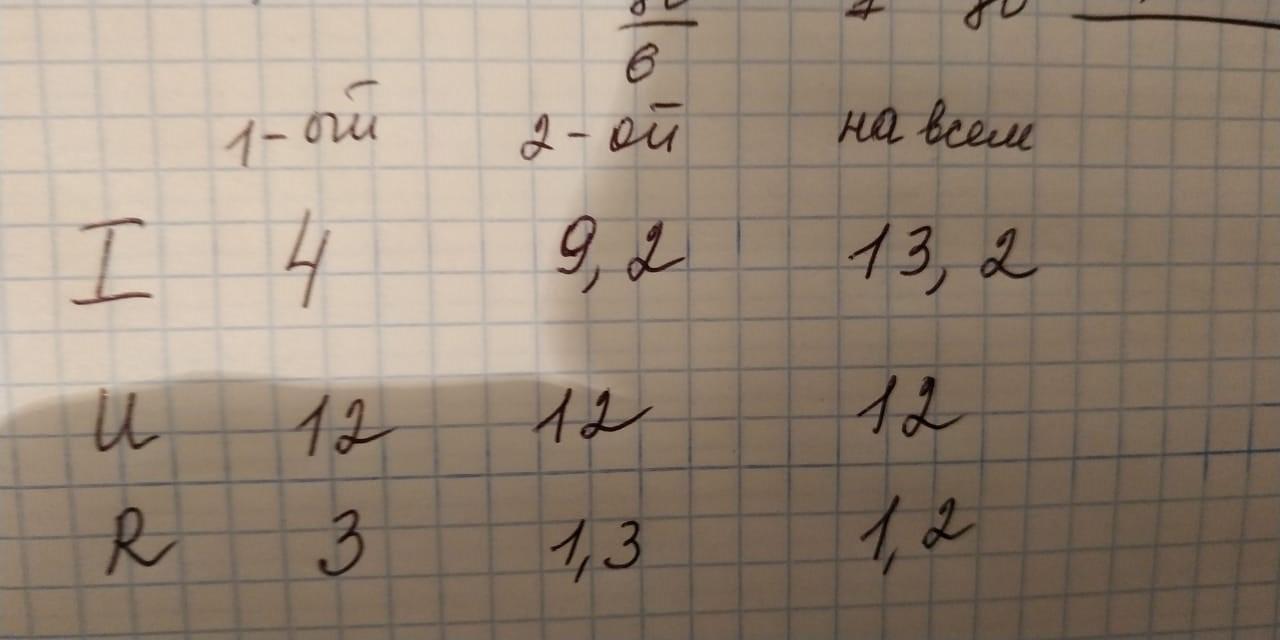 6
1-ой 2-ой на всем
I 4 9,2 13,2
U 12 12 12
R 3 1,3 1,2